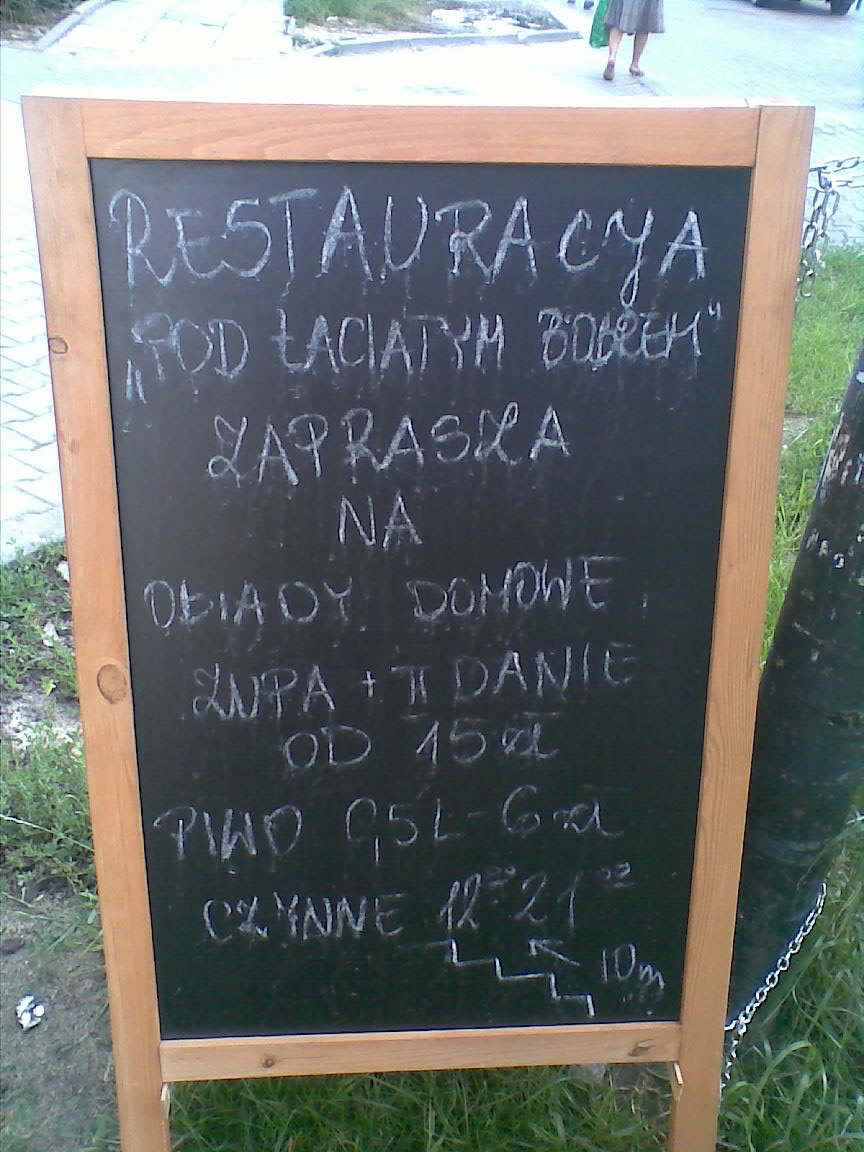 RESTAURACYA
„POD ŁACIATYM BOBREM"
ZAPRASZA
NA
OBIADY DOMOWE
ZUPA + II DANIE
OD 15 zł
PIWO 0,5 L - 6 zł
CZYNNE 12⁰⁰ 21⁰⁰
10m